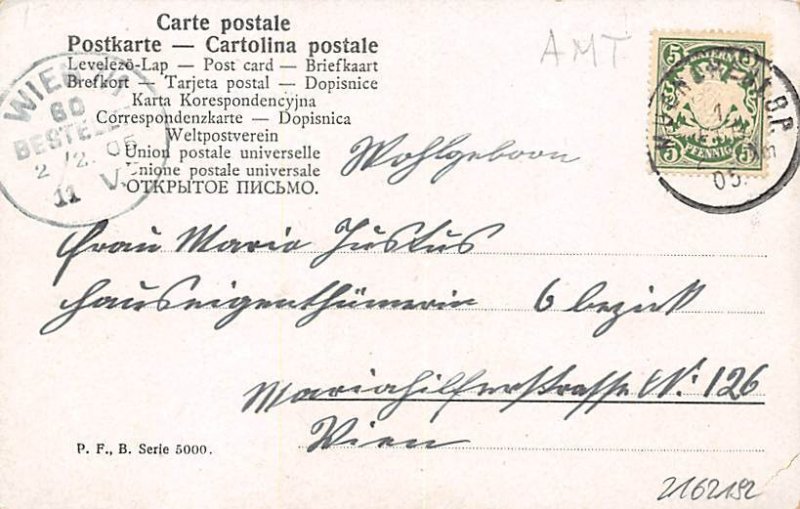 Carte postale
Postkarte — Cartolina postale
Levelezö-Lap — Post card — Briefkaart
Brefkort — Tarjeta postal — Dopisnice
Karta Korespondencyjna
Correspondenzkarte — Dopisnica
Weltpostverein
Union postale universelle
Unione postale universale
ОТКРЫТОЕ ПИСЬМО.
AMT
WIEN
60
BESTELLT
2/2. 05
11 V.
5 5
PFENNIG
5 5
MUENCHEN
05.
Wohlgeboren
Frau Maria Justus
Hauseigenthümerin 6 bezirk
Mariahilferstrasse No: 126
Wien
P. F., B. Serie 5000.
2162192